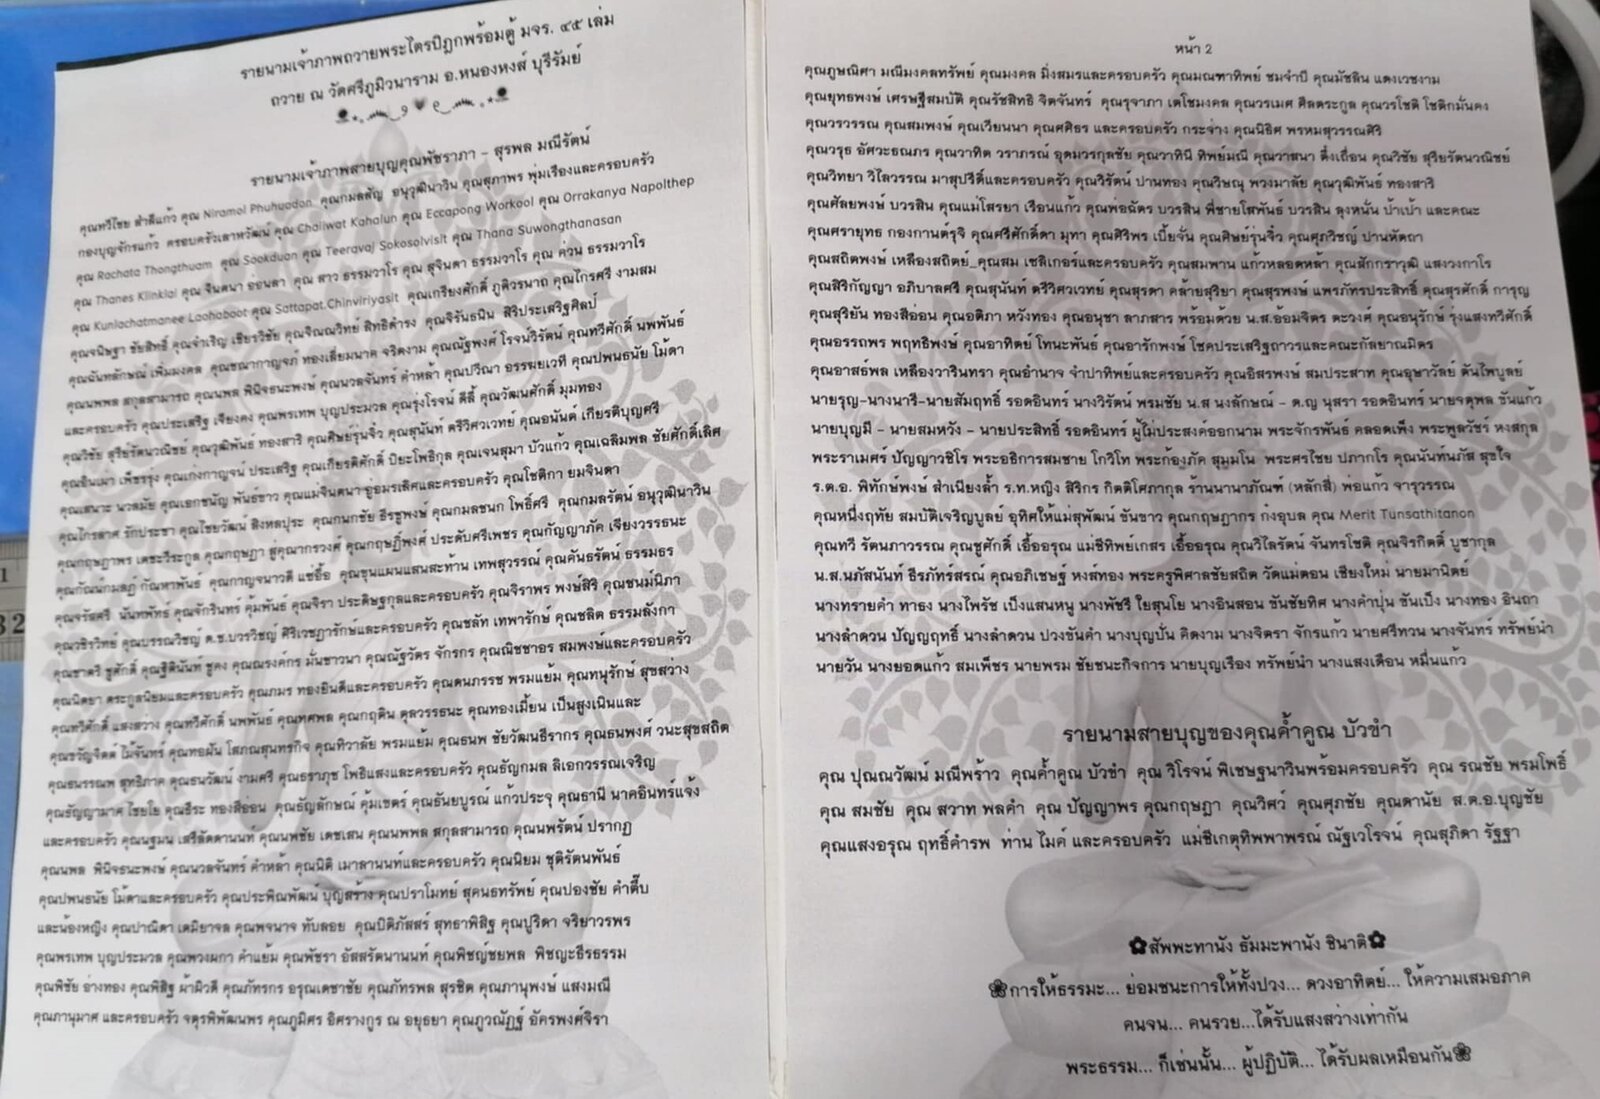 รายนามเจ้าภาพถวายพระไตรปิฎกพร้อมตู้ มจร. ๔๕ เล่ม
ถวาย ณ วัดศรีภูมิวนาราม อ.หนองหงส์ บุรีรัมย์
รายนามเจ้าภาพสายบุญคุณพัชราภา – สุรพล มณีรัตน์
คุณทวีไชย สำดีแก้ว คุณ Niramol Phuhuadon คุณกมลสัญ อนุวุฒินาวิน คุณสุภาพร พุ่มเรืองและครอบครัว
กองบุญจักรแก้ว ครอบครัวเลาหวัฒน์ คุณ Chaliwat Kahalun คุณ Eccapong Workool คุณ Orrakanya Napolthep
คุณ Rachata Thongthuam คุณ Sookduan คุณ Teeravaj Sokosolvisit คุณ Thana Suwongthanasan
คุณ Thanes Klinklai คุณ จินตนา อ่อนลา คุณ สาว ธรรมวาโร คุณ สุจินดา ธรรมวาโร คุณ ค่วน ธรรมวาโร
คุณ Kunlachatmanee Laohaboot คุณ Sattapat.Chinviriyasit คุณเกรียงศักดิ์ ภูติวรนาถ คุณไกรศรี งามสม
คุณจนิษฐา ชัยสิทธิ์ คุณจำเริญ เชียรวิชัย คุณจิณณวิทย์ สิทธิดำรง คุณจิรันธนิน สิริประเสริฐศิลป์
คุณฉันทลักษณ์ เพิ่มมงคล คุณชณากาญจภ์ ทองเลี่ยมนาค จริตงาม คุณณัฐพงศ์ โรจน์วิรัตน์ คุณทวีศักดิ์ นพพันธ์
คุณนพพล สกุลสามารถ คุณนพล พินิจธนะพงษ์ คุณนวลจันทร์ คำหล้า คุณปวีณา อรรฆยเวที คุณปพนธนัย โม้ดา
และครอบครัว คุณประเสริฐ เจียงคง คุณพรเทพ บุญประมวล คุณรุ่งโรจน์ ดีลี้ คุณวัฒนศักดิ์ มุมทอง
คุณวิชัย สุรียรัตนวณิชย์ คุณวุฒิพันธ์ ทองสาริ คุณศิษย์รุ่นจิ๋ว คุณสุนันท์ ตรีวิศวเวทย์ คุณอนันต์ เกียรติบุญศรี
คุณอินเผา เพ็ชรรุ่ง คุณเก่งกาญจน์ ประเสริฐ คุณเกียรติศักดิ์ ปิยะโพธิกุล คุณเจนสุมา บัวแก้ว คุณเฉลิมพล ชัยศักดิ์เลิศ
คุณเสนาะ นวลมัย คุณเอกชนัญ พันธ์ขาว คุณแม่จินตนา อู่อมรเลิศและครอบครัว คุณโชติกา ยมจินดา
คุณไกรลาศ รักประชา คุณไชยวัฒน์ สิงหลปุระ คุณกนกชัย ธีรชูพงษ์ คุณกมลชนก โพธิ์ศรี คุณกมลรัตน์ อนุวุฒินาวิน
คุณกฤษฎาพร เดชะวีระกูล คุณกฤษฎา สู่คุณากรวงศ์ คุณกฤษฏิ์พงศ์ ประดับศรีเพชร คุณกัญญาภัค เจียงวรรธนะ
คุณกัณณ์กมลฎ์ กัณหาพันธ์ คุณกาญจนาวดี แซ่อื้อ คุณขุนแผนแสนสะท้าน เทพสุวรรณ์ คุณคันธรัตน์ ธรรมธร
คุณจรัสศรี นันทพัทธ์ คุณจักรินทร์ คุ้มพันธ์ คุณจิรา ประดิษฐกุลและครอบครัว คุณจิราพร พงษ์สิริ คุณชนม์นิภา
คุณวชิรวิทย์ คุณบรรณวิชญ์ ด.ช.บวรวิชญ์ ศิริเวชฎารักษ์และครอบครัว คุณชลัท เทพารักษ์ คุณชลิต ธรรมลังกา
คุณชาตรี ชูศักดิ์ คุณฐิตินันท์ ชูคง คุณณรงค์กร มั่นชาวนา คุณณัฐวัตร จักรกร คุณณิชชาอร สมพงษ์และครอบครัว
คุณนิตยา ตระกูลนิยมและครอบครัว คุณภมร ทองยินดีและครอบครัว คุณดนภรรช พรมแย้ม คุณทนุรักษ์ สุขสวาง
คุณทวีศักดิ์ แสงสว่าง คุณทวีศักดิ์ นพพันธ์ คุณทศพล คุณกฤติน ตุลวรรธนะ คุณทองเมี้ยน เป็นสูงเนินและ
คุณขวัญจิตต์ ไม้จันทร์ คุณทอผัน โสภณสุนทรกิจ คุณทิวาลัย พรมแย้ม คุณธนพ ชัยวัฒนธีรากร คุณธนพงศ์ วนะสุขสถิต
คุณธนรรณพ สุทธิภาค คุณธนวัฒน์ งามศรี คุณธราภุช โพธิแสงและครอบครัว คุณธัญกมล ลิเอกวรรณเจริญ
คุณธัญญามาศ ไชยโย คุณธีระ ทองสีอ่อน คุณธัญลักษณ์ คุ้มเขตร์ คุณธันยบูรณ์ แก้วประจุ คุณธานี นาคอินทร์แจ้ง
และครอบครัว คุณนฐมน เสรีลัดดานนท์ คุณนพชัย เดชเสน คุณนพพล สกุลสามารถ คุณนพรัตน์ ปรากฏ
คุณนพล พินิจธนะพงษ์ คุณนวลจันทร์ คำหล้า คุณนิติ เมาลานนท์และครอบครัว คุณนิยม ชุติรัตนพันธ์
คุณปพนธนัย โม้ดาและครอบครัว คุณประพิณพัฒน์ บุญสร้าง คุณปราโมทย์ สุคนธทรัพย์ คุณปองชัย คำตื้บ
และน้องหญิง คุณปาณิดา เดมิยาจล คุณพจนาจ ทับลอย คุณปิติภัสสร์ สุทธาพิสิฐ คุณปูริดา จริยาวรพร
คุณพรเทพ บุญประมวล คุณพวงผกา คำแย้ม คุณพัชรา อัสสรัตนานนท์ คุณพิชญ์ชยพล พิชญะธีรธรรม
คุณพิชัย อ่างทอง คุณพิสิฐ ผ้าผิวดี คุณภัทรกร อรุณเดชาชัย คุณภัทรพล สุรชิต คุณภานุพงษ์ แสงมณี
คุณภานุมาศ และครอบครัว จตุรพิพัฒนพร คุณภูมิศร อิศรางกูร ณ อยุธยา คุณภูวณัฏฐ์ อัครพงศ์จิรา
หน้า 2
คุณภูษณิศา มณีมงคลทรัพย์ คุณมงคล มิ่งสมรและครอบครัว คุณมณฑาทิพย์ ชมจำปี คุณมัชลิน แดงเวชงาม
คุณยุทธพงษ์ เศรษฐีสมบัติ คุณรัชสิทธิ จิตจันทร์ คุณรุจาภา เตโชมงคล คุณวรเมศ ศิลตระกูล คุณวรโชติ โชติกมั่นคง
คุณวรวรรณ คุณสมพงษ์ คุณเวียนนา คุณศศิธร และครอบครัว กระจ่าง คุณนิธิศ พรหมสุวรรณศิริ
คุณวรุธ อัศวะธณภร คุณวาทิต วราภรณ์ อุดมวรกุลชัย คุณวาทินี ทิพย์มณี คุณวาสนา ตึ่งเถื่อน คุณวิชัย สุริยรัตนวณิชย์
คุณวิทยา วิไลวรรณ มาสุปรีดิ์และครอบครัว คุณวิรัตน์ ปานทอง คุณวิษณุ พวงมาลัย คุณวุฒิพันธ์ ทองสาริ
คุณศัลยพงษ์ บวรสิน คุณแม่โสรยา เรือนแก้ว คุณพ่อฉัตร บวรสิน พี่ชายโสพันธ์ บวรสิน ลุงหนั่น ป้าเป้า และคณะ
คุณศรายุทธ กองกานต์รุจิ คุณศรีศักดิ์ดา มุทา คุณศิริพร เบี้ยจั่น คุณศิษย์รุ่นจิ๋ว คุณศุภวิชญ์ ปานหัตถา
คุณสถิตพงษ์ เหลืองสถิตย์_คุณสม เซลิเกอร์และครอบครัว คุณสมพาน แก้วหลอดหล้า คุณสักกราวุฒิ แสงวงกาโร
คุณสิริกัญญา อภิบาลศรี คุณสุนันท์ ตรีวิศวเวทย์ คุณสุรดา คล้ายสุริยา คุณสุรพงษ์ แพรภัทรประสิทธิ์ คุณสุรศักดิ์ การุญ
คุณสุริยัน ทองสีอ่อน คุณอติภา หวังทอง คุณอนุชา ลาภสาร พร้อมด้วย น.ส.ออมจิตร ตะวงศ์ คุณอนุรักษ์ รุ่งแสงทวีศักดิ์
คุณอรรถพร พฤทธิพงษ์ คุณอาทิตย์ โทนะพันธ์ คุณอารักพงษ์ โชคประเสริฐถาวรและคณะกัลยาณมิตร
คุณอาสธ์พล เหลืองวารินทรา คุณอำนาจ จำปาทิพย์และครอบครัว คุณอิสรพงษ์ สมประสาท คุณอุษาวัลย์ ตันไพบูลย์
นายรุญ-นางนารี-นายสัมฤทธิ์ รอดอินทร์ นางวิรัตน์ พรมชัย น.ส นงลักษณ์ - ด.ญ นุสรา รอดอินทร์ นายจตุพล ขันแก้ว
นายบุญมี - นายสมหวัง - นายประสิทธิ์ รอดอินทร์ ผู้ไม่ประสงค์ออกนาม พระจักรพันธ์ คลอดเพ็ง พระพูลวัชร์ หงสกุล
พระราเมศร์ ปัญญาวชิโร พระอธิการสมชาย โกวิโท พระก้องภัค สุมมโน พระศรไชย ปภากโร คุณนันท์นภัส สุขใจ
ร.ต.อ. พิทักษ์พงษ์ สำเนียงล้ำ ร.ท.หญิง สิริกร กิตติโศภากุล ร้านนานาภัณฑ์ (หลักสี่) พ่อแก้ว จารุวรรณ
คุณหนึ่งฤทัย สมบัติเจริญบูลย์ อุทิศให้แม่สุพัฒน์ ขันขาว คุณกฤษฎากร ก่งอุบล คุณ Merit Tunsathitanon
คุณทวี รัตนภาวรรณ คุณชูศักดิ์ เอื้ออรุณ แม่ชีทิพย์เกสร เอื้ออรุณ คุณวิไลรัตน์ จันทรโชติ คุณจิรกิตติ์ บูชากุล
น.ส.นภัสนันท์ ธีรภัทร์สรณ์ คุณอภิเชษฐ์ หงส์ทอง พระครูพิศาลชัยสถิต วัดแม่ตอน เชียงใหม่ นายมานิตย์
นางทรายคำ ทาธง นางไพรัช เป็งแสนหนู นางพัชรี ใยสุนโย นางอินสอน ขันชัยทิศ นางคำปุ่น ขันเป็ง นางทอง อินถา
นางลำดวน ปัญญฤทธิ์ นางลำดวน ปวงขันคำ นางบุญปั่น คิดงาม นางจิตรา จักรแก้ว นายศรีทวน นางจันทร์ ทรัพย์นำ
นายวัน นางยอดแก้ว สมเพ็ชร นายพรม ชัยชนะกิจการ นายบุญเรือง ทรัพย์นำ นางแสงเดือน หมื่นแก้ว
รายนามสายบุญของคุณค้ำคูณ บัวขำ
คุณ ปุณณวัฒน์ มณีพร้าว คุณค้ำคูณ บัวขำ คุณ วิโรจน์ พิเชษฐนาวินพร้อมครอบครัว คุณ รณชัย พรมโพธิ์
คุณ สมชัย คุณ สวาท พลคำ คุณ ปัญญาพร คุณกฤษฎา คุณวิศว์ คุณศุภชัย คุณดานัย ส.ต.อ.บุญชัย
คุณแสงอรุณ ฤทธิ์คำรพ ท่าน ไมค์ และครอบครัว แม่ชีเกตุทิพพาพรณ์ ณัฐเวโรจน์ คุณสุภิดา รัฐฐา
✿สัพพะทานัง ธัมมะพานัง ชินาติ✿
❀การให้ธรรมะ... ย่อมชนะการให้ทั้งปวง... ดวงอาทิตย์... ให้ความเสมอภาค
คนจน... คนรวย...ได้รับแสงสว่างเท่ากัน
พระธรรม... ก็เช่นนั้น... ผู้ปฏิบัติ... ได้รับผลเหมือนกัน❀